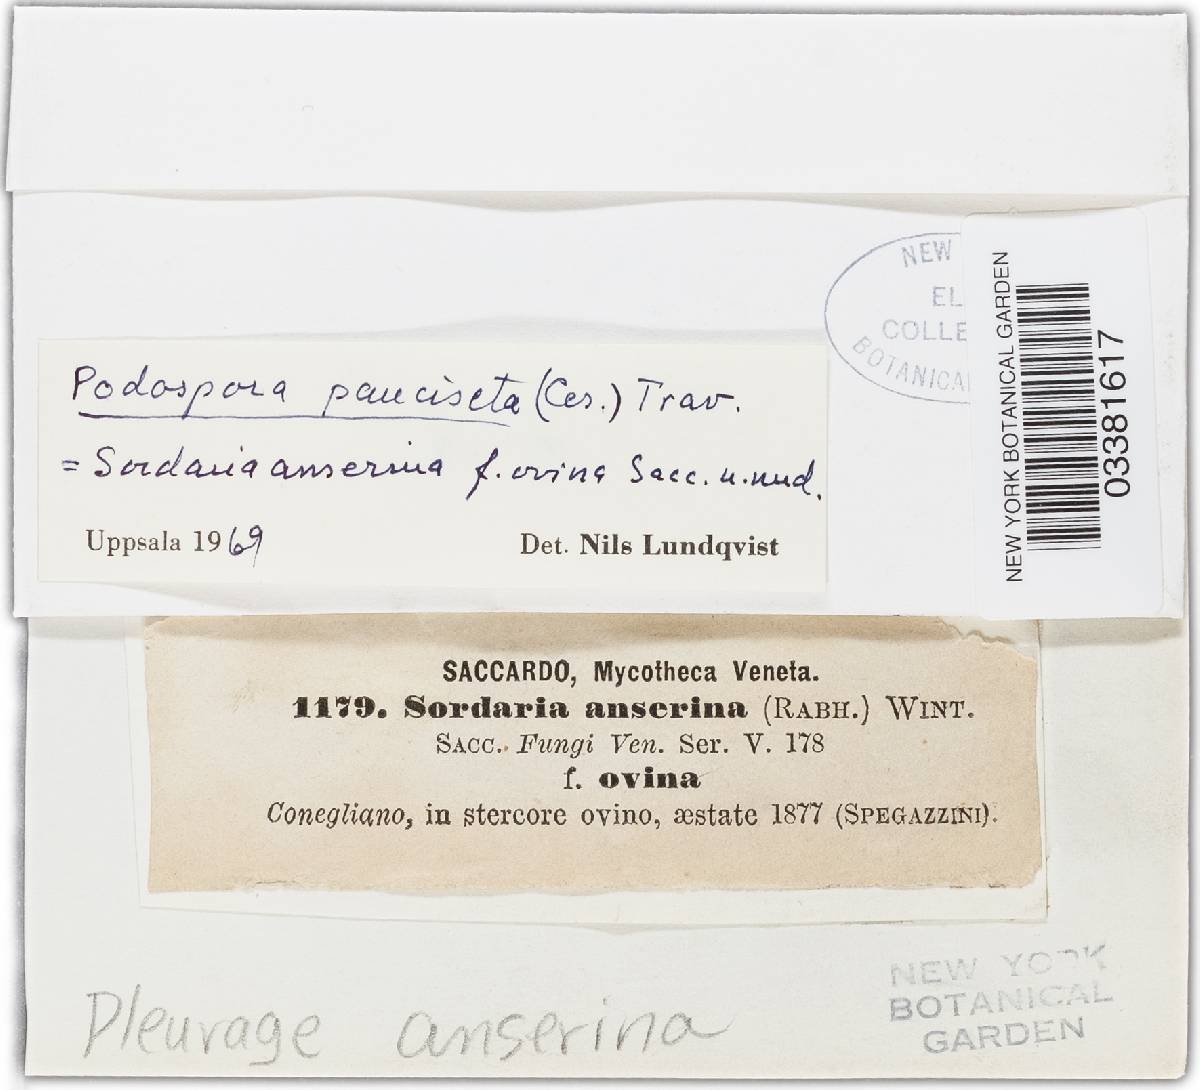 NEW
EL
COLLE
BOTANICA
NEW YORK BOTANICAL GARDEN
03381617
Podospora pauciseta (Ces.) Trav.
= Sordaria anserina f. ovina Sacc. n. nud.
Uppsala 1969 Det. Nils Lundqvist
SACCARDO, Mycotheca Veneta.
1179. Sordaria anserina (RABH.) WINT.
SACC. Fungi Ven. Ser. V. 178
f. ovina
Conegliano, in stercore ovino, æstate 1877 (SPEGAZZINI).
Pleurage anserina
NEW YORK
BOTANICAL
GARDEN